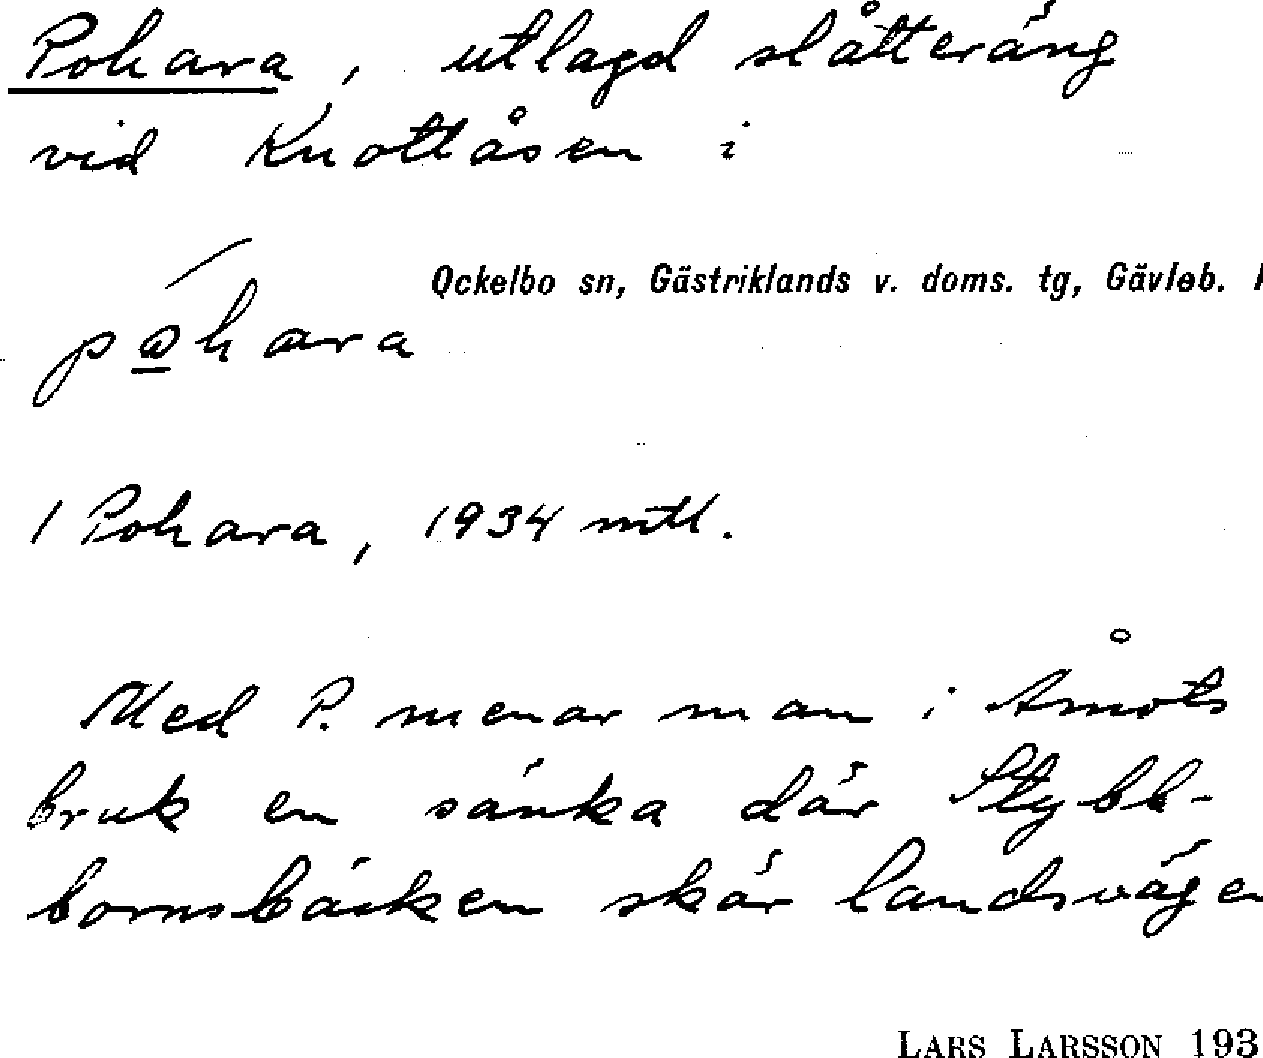 Pohara, utlagd slåtteräng
vid Knottåsen i
Ockelbo sn, Gästriklands v. doms. tg, Gävleb. l
po̲hara
1 Pohara, 1934 mtl.
Med P. menar man i Åmots
bruk en sänka där Stybb-
bornsbäcken skär landsvägen
LARS LARSSON 193